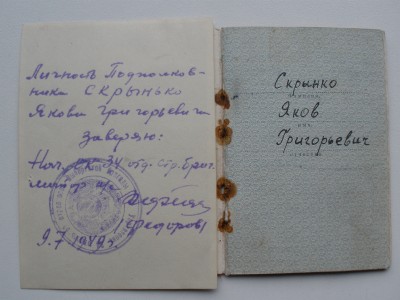 Личность Подполков-
ника СКРЫНЬКО
Якова Григорьевича
Заверяю:
Нач. 34 отд. стр. бриг.
Федоров
9.7 1949г
Скрынко
Яков
Григорьевич